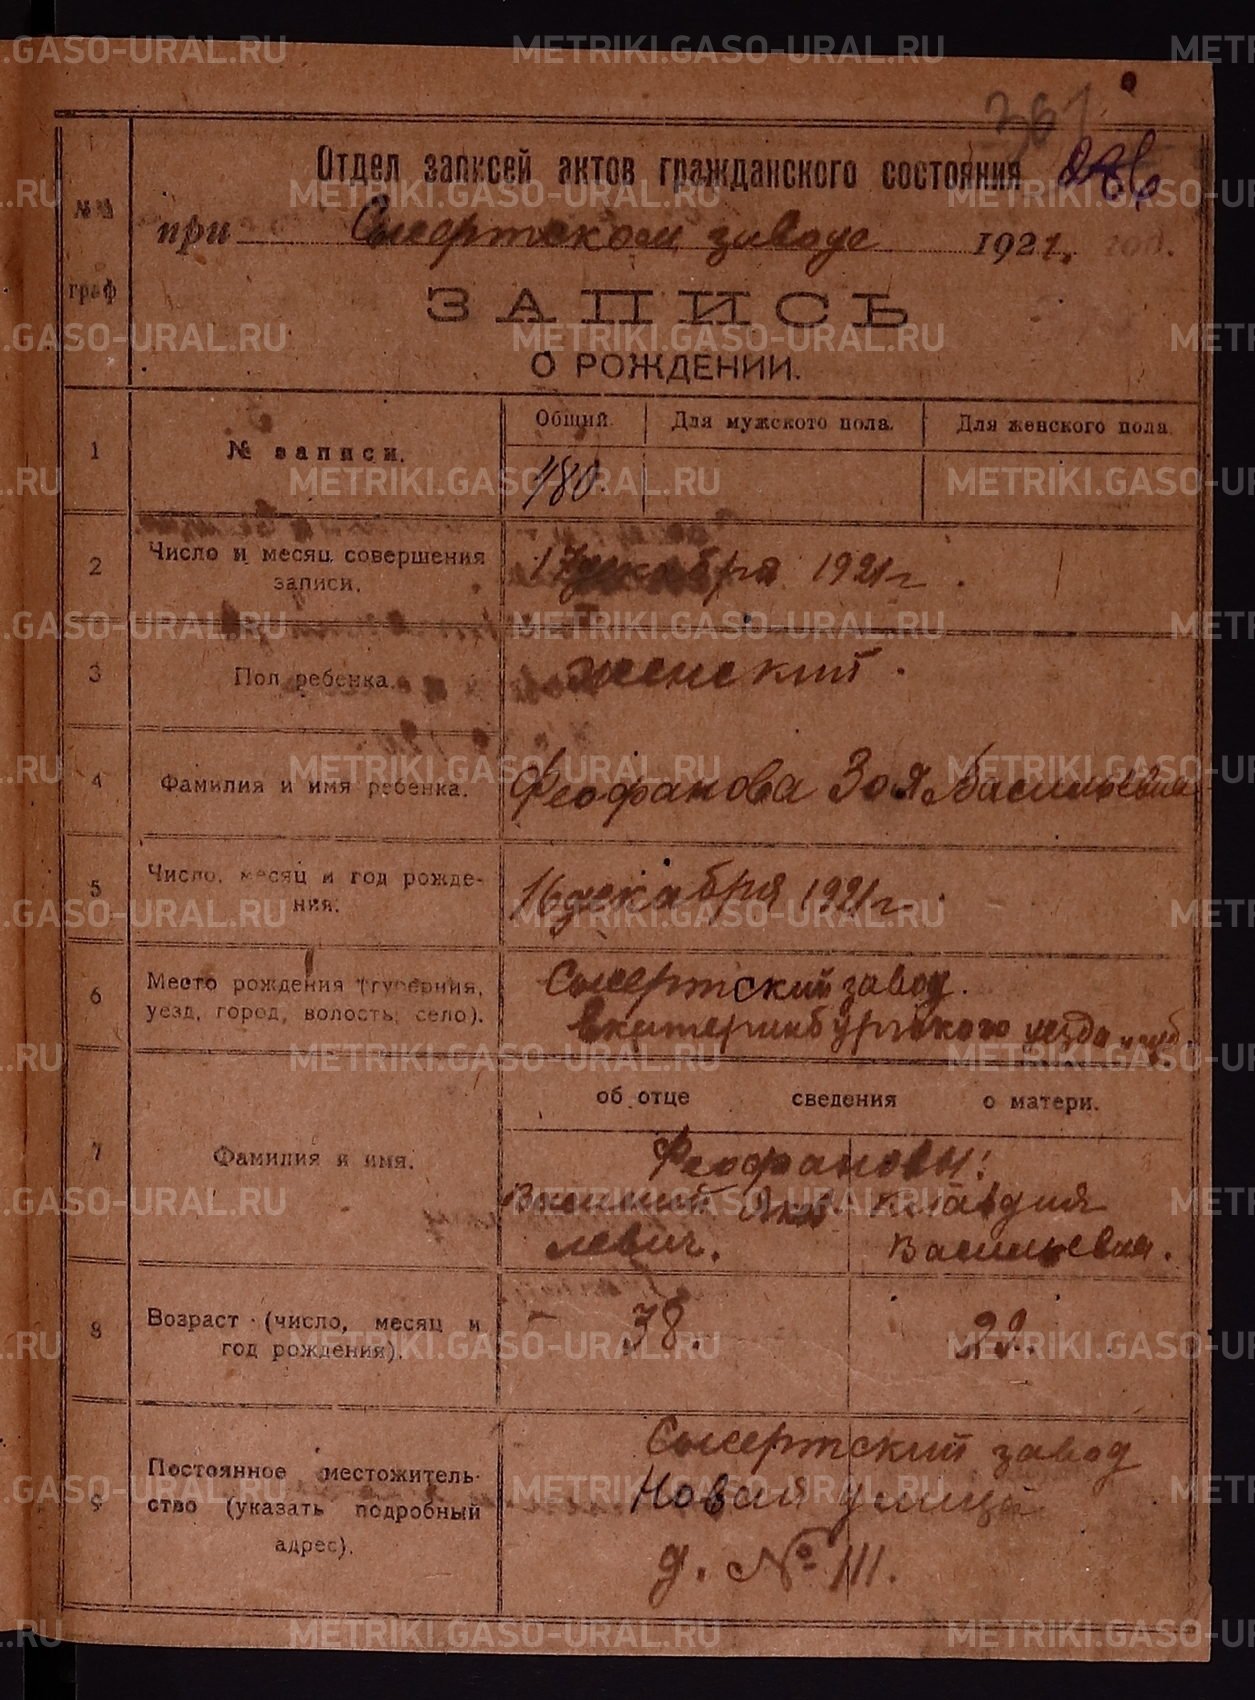 361
Отдел записей актов гражданского состояния
при Сысертском заводе 1921 год.
№№ граф
ЗАПИСЬ
О РОЖДЕНИИ.
1 № записи. Общий. Для мужского пола. Для женского пола.
480.
2 Число и месяц совершения записи. 17 декабря 1921 г.
3 Пол ребенка. женский.
4 Фамилия и имя ребенка. Феофанова Зоя Васильевна
5 Число, месяц и год рожде-
ния. 16 декабря 1921 г.
6 Место рождения (губерния, Сысертский завод.
уезд, город, волость, село). Екатеринбургского уезда и губ.
об отце сведения о матери.
7 Фамилия и имя. Феофановы:
Василий Яков- Клавдия
левич. Васильевна.
8 Возраст (число, месяц и
год рождения). 38. 29.
9 Постоянное местожитель-
ство (указать подробный
адрес).
Сысертский завод
Новая улица
д. № 111.
METRIKI.GASO-URAL.RU